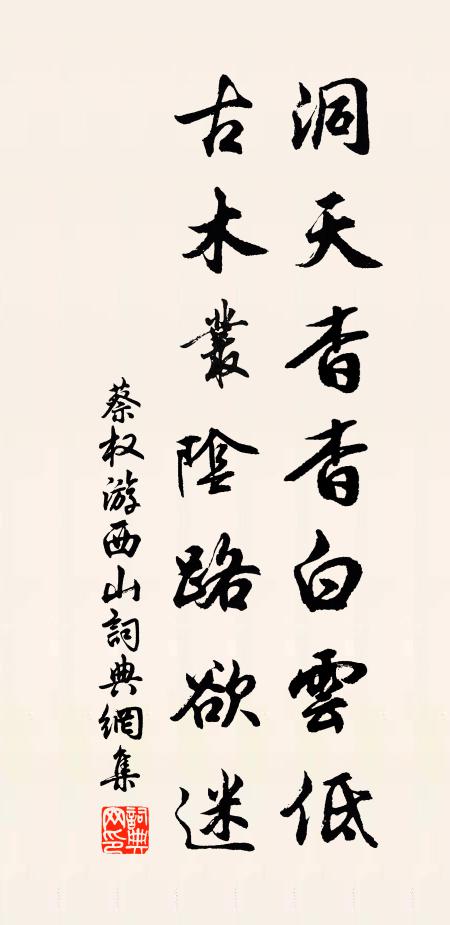 洞天杳杳白雲低
古木叢陰路欲迷
蔡权游西山詞典網集
詞典网印